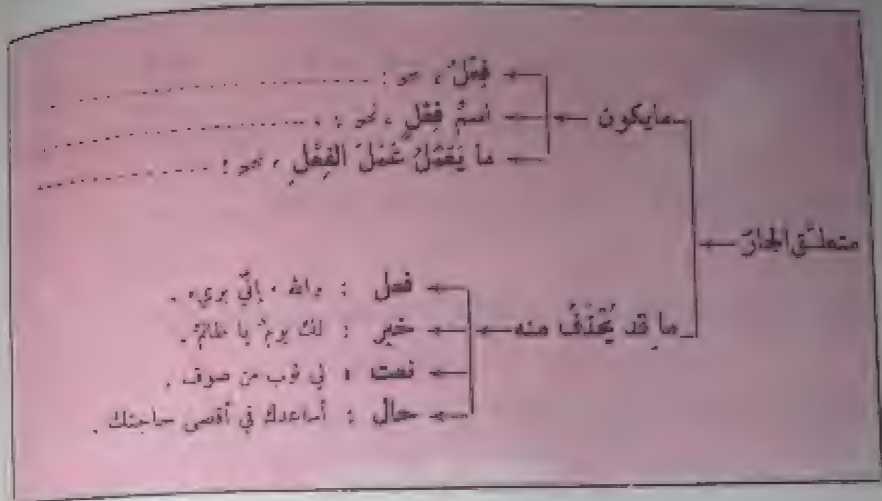 متعلّق الجارّ
ما يكون
فِعْلٌ ، نحو : ...........................
اسمُ فِعْلٍ ، نحو : ...........................
ما يَعْمَلُ عَمَلَ الفِعْلِ ، نحو : ...........................
ما قد يُحْذَفُ منه
فعل : والله ، إنّي بريء .
خبر : لك يومٌ يا ظالمُ .
نعت : لي ثوب من صوف .
حال : أساعدك في أقصى حاجتك .